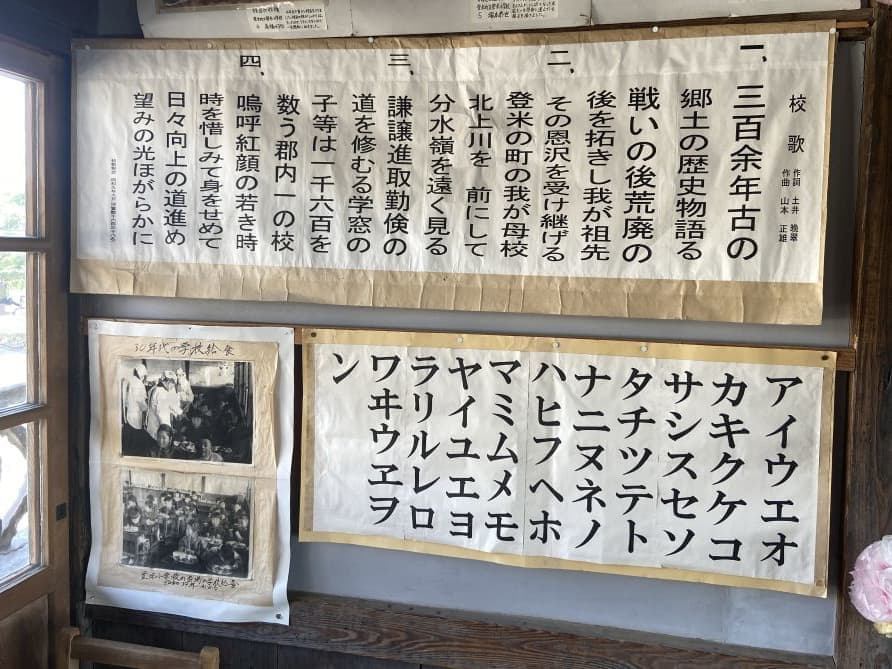 校歌
作詞 土井 晩翠
作曲 山本 正雄
一、三百余年古の
郷土の歴史物語る
戦いの後荒廃の
後を拓きし我が祖先
二、その恩沢を受け継げる
登米の町の我が母校
北上川を 前にして
分水嶺を遠く見る
三、謙譲進取勤倹の
道を修むる学窓の
子等は一千六百を
数う郡内一の校
四、嗚呼紅顔の若き時
時を惜しみて身をせめて
日々向上の道進め
望みの光ほがらかに
30年代の学校給食
アイウエオ
カキクケコ
サシスセソ
タチツテト
ナニヌネノ
ハヒフヘホ
マミムメモ
ヤイユエヨ
ラリルレロ
ワヰウヱヲ
ン